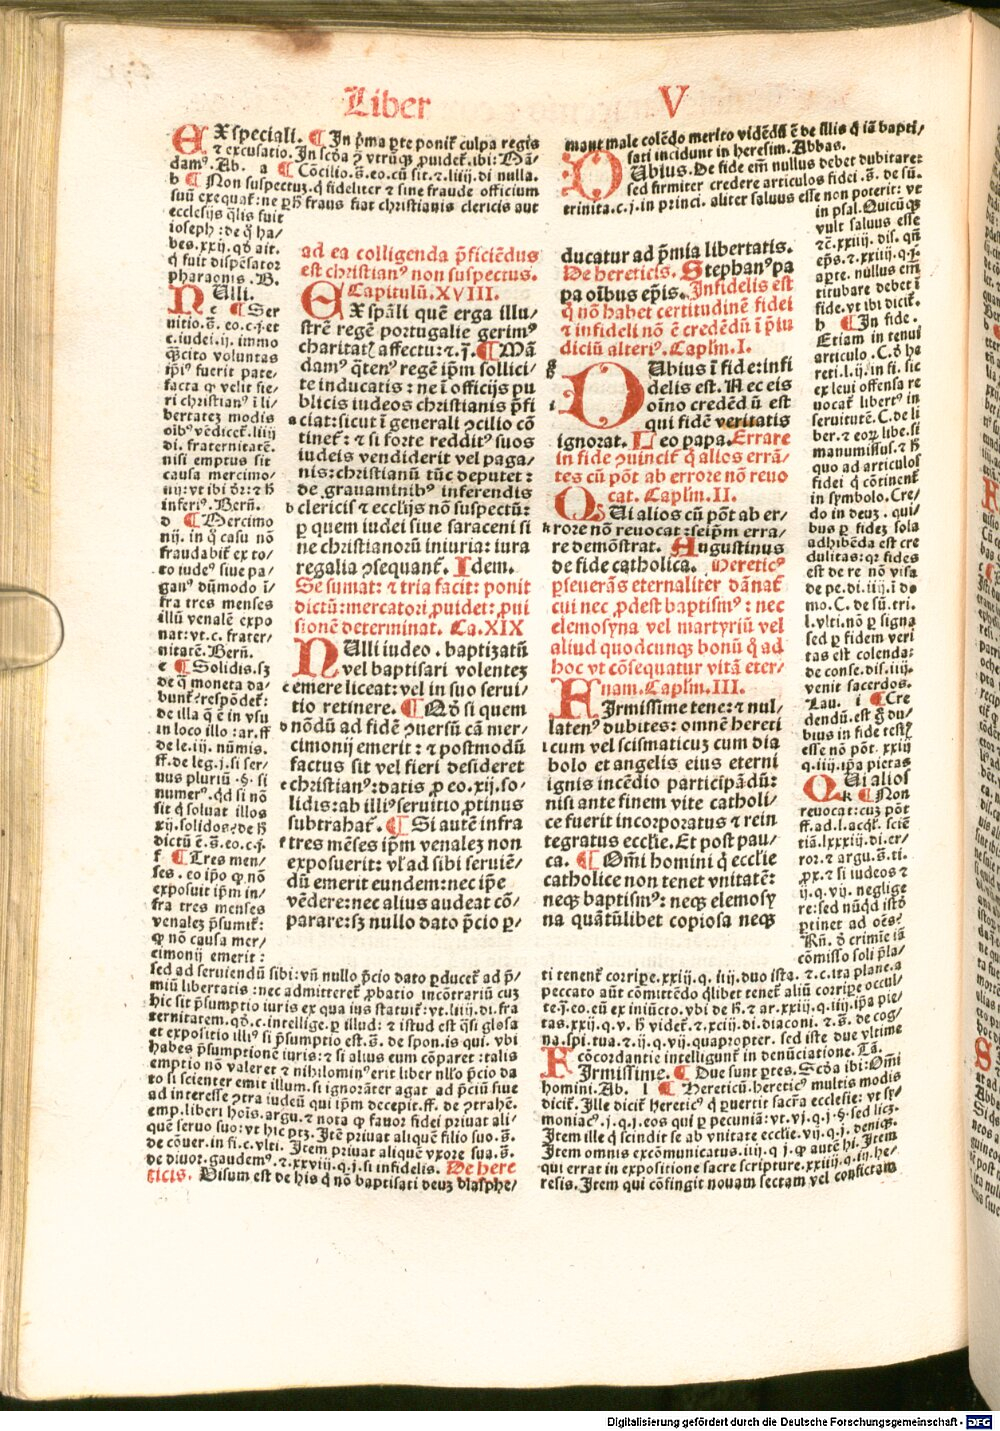 Liber V
EX speciali. ¶ In p̄ma ꝑte ponit̃ culpa regis
⁊ excusatio. In scōa ꝓ vtrūqꝫ ꝓuidet̃. ibi: Mā/
damꝰ. Ab. a ¶ Cōcilio. s̄. eo. cū sit. ⁊ l. iiij. di. nulla.
b ¶ Non suspectuꝫ. q̄ fideliter ⁊ sine fraude officium
suū exequat̃: ne ꝑ h̄ fraus fiat christianis clericis aut
ecclesijs q̄lis fuit
ioseph: de q̄ ha/
bes. xxij. qō ait.
q̄ fuit dispēsator
pharaonis. B.
NUlli.
e ¶ Ser
nitio. s̄. eo. c. j. et
c. iudei. ij. immo
qꝫcito voluntas
ip̄iꝰ fuerit pate/
facta ꝙ velit fie/
ri christianꝰ ī li/
bertateꝫ modis
oībꝰ vēdicet̃. liiij
di. fraternitatē.
nisi emptus sit
causa mercimo/
nij: vt ibi dr̄: ⁊ h̄
inferiꝰ. Bern̄.
d ¶ Mercimo
nij. in q̄ casu nō
fraudabit̃ ex to/
to iudeꝰ siue pa/
ganꝰ dūmodo ī/
fra tres menses
illū venalē expo
nat: vt. c. frater/
nitatē. Bern̄.
e ¶ Solidis. sꝫ
de q̄ moneta da/
bunt̃: respōdet̃:
de illa q̄ ē in vsu
in loco illo: ar. ff
de le. iij. nūmis.
ff. de leg. j. si ser/
uus pluriū .§. si
numerꝰ. qd si nō
sit q̄ soluat illos
xij. solidos: de h̄
dictū ē. s̄. eo. c. j.
f ¶ Tres men/
ses. eo ip̄o ꝙ nō
exposuit ip̄m in/
fra tres menses
venaleꝫ p̄sumit̃:
ꝙ nō causa mer/
cimonij emerit:
sed ad seruiendū sibi: vn̄ nullo p̄cio dato ꝑducet̃ ad p̄/
miū libertatis: nec admitteret̃ ꝓbatio incōtrariū cuꝫ
hic sit p̄sumptio iuris ex qua ius statuit̃: vt. liiij. di. fra
ternitatem. qō. c. intellige. ꝑ illud: ⁊ istud est q̄si glosa
et expositio illiꝰ si p̄sumptio est. s̄. de spon. is qui. vbi
habes p̄sumptionē iuris: ⁊ si alius eum cōparet: talis
emptio nō valeret ⁊ nihilominꝰ erit liber nllo p̄cio da
to si scienter emit illum. si ignorāter agat ad p̄ciū siue
ad interesse ꝯtra iudeū qui ip̄m decepit. ff. de ꝯtrahē.
emp. liberi hoīs. argu. ⁊ nota ꝙ fauor fidei priuat ali/
quē seruo suo: vt hic ptꝫ. Itē priuat aliquē filio suo. s̄.
de cōuer. in fi. c. vlti. Item priuat aliquē vxore sua. s̄.
de diuor. gaudemꝰ. ⁊. xxviij. q. j. si infidelis. De here
ticis. Uisum est de his q̄ nō baptisati deuꝫ blasphe/
ad ea colligenda p̄ficiēdus
est christianꝰ non suspectus.
Capitulū. XVIII.
EXspāli quē erga illu/
strē regē portugalie gerimꝰ
charitatꝭ affectu: ⁊. j̄. ¶ Mā
damꝰ q̄tenꝰ regē ip̄m sollici/
te inducatis: ne ī officijs pu
blicis iudeos christianis p̄fi
ciat: sicut ī generali ꝯcilio cō
tinet̃: ⁊ si forte redditꝰ suos
iudeis vendiderit vel paga/
nis: christianū tūc deputet:
de grauaminibꝰ inferendis
clericis ⁊ ecclijs nō suspectū:
ꝑ quem iudei siue saraceni si
ne christianorū iniuria: iura
regalia ꝯsequant̃. Idem.
Se sumat: ⁊ tria facit: ponit
dictū: mercatori ꝓuidet: ꝓui
sionē determinat. Ca. XIX
NUlli iudeo. baptizatū
vel baptisari volenteꝫ
emere liceat: vel in suo serui/
tio retinere. ¶ Qō si quem
nōdū ad fidē ꝯuersū cā mer/
cimonij emerit: ⁊ postmodū
factus sit vel fieri desideret
christianꝰ: datis ꝓ eo. xij. so/
lidis: ab illiꝰ seruitio ꝓtinus
subtrahat̃. ¶ Si autē infra
tres mēses ip̄m venalez non
exposuerit: vl̄ ad sibi seruiē/
dū emerit eundem: nec ip̄e
vēdere: nec alius audeat cō/
parare: sꝫ nullo dato p̄cio ꝑ/
ducatur ad p̄mia libertatis.
De hereticis. Stephanꝰ pa
pa oībus ep̄is. Infidelis est
q̄ nō habet certitudinē fidei
⁊ infideli nō ē credēdū ī p̄iu
diciū alteriꝰ. Caplm. I.
DUbius ī fide: infi
delis est. Nec eis
oīno credēdū est
qui fidē veritatis
ignorat. Leo papa. Errare
in fide ꝯuincit̃ q̄ alios errā/
tes cū pōt ab errore nō reuo
cat. Caplm. II.
QUi alios cū pōt ab er/
rore nō reuocat: seip̄m erra/
re demōstrat. Augustinus
de fide catholica. Hereticꝰ
ꝑseuerās eternaliter dānat̃
cui nec ꝓdest baptismꝰ: nec
elemosyna vel martyriū vel
aliud quodcunqꝫ bonū q̄ ad
hoc vt cōsequatur vitā eter/
nam. Caplm. III.
FIrmissime tene: ⁊ nul/
latenꝰ dubites: omnē hereti
cum vel scismaticuꝫ cum dia
bolo et angelis eius eterni
ignis incēdio participādū:
nisi ante finem vite catholi/
ce fuerit incorporatus ⁊ rein
tegratus ecclie. Et post pau/
ca. ¶ Om̄i homini q̄ ecclie
catholice non tenet vnitatē:
neqꝫ baptismꝰ: neqꝫ elemosy
na quātūlibet copiosa neqꝫ
mant male colēdo merito vidēdū ē de illis q̄ iā bapti/
sati incidunt in heresim. Abbas.
DUbius. De fide em̄ nullus debet dubitare:
sed firmiter credere articulos fidei. s̄. de sū.
trinita. c. j. in princi. aliter saluus esse non poterit: vt
in psal. Quicūqꝫ
vult saluus esse
⁊ē. xxiij. dis. qn̄
ep̄s. ⁊. xxiiij. q. j.
aperte. nullus em̄
titubare debet ī
fide. vt ibi dicit̃.
h ¶ In fide.
Etiam in tenui
articulo. C. d̄ he
reti. l. ij. in fi. sic
ex leui offensa re
uocat̃ libertꝰ in
seruitutē. C. de li
ber. ⁊ eoꝝ libe. si
manumissus. ⁊ h̄
quo ad articulos
fidei q̄ cōtinent̃
in symbolo. Cre/
do in deuꝫ. qui/
bus ꝑ fideꝫ sola
adhibēda est cre
dulitas: qꝛ fides
est de re nō visa
de pe. di. iiij. ī do
mo. C. de sū. tri.
l. vlti. nō ꝑ signa
sed ꝑ fidem veri
tas est colenda:
de conse. dis. iiij.
venit sacerdos.
Lau. i ¶ Cre
dendū. est ḡ du/
bius in fide testꝭ
esse nō pōt. xxiij
q. iiij. ip̄a pietas
QUi alios
k ¶ Non
reuocat: cuꝫ pōt
ff. ad. l. acq̄l. sciē
tiā. lxxxiij. di. er/
ror. ⁊ argu. s̄. ti.
ꝓx. ⁊ si iudeos ⁊
ij. q. vij. neglige
re: sed nūqd istō
ꝑtinet ad oēs?
Rn̄. d̄ crimīe iā
cōmisso soli p̄la/
ti tenent̃ corripe. xxiij. q. iiij. duo ista. ⁊. c. ita plane. a
peccato aūt cōmittēdo q̄libet tenet̃ aliū corripe occul/
te. j̄. eo. cū ex iniūcto. vbi de h̄. ⁊ ar. xxiij. q. iiij. ip̄a pie/
tas. xxij. q. v. h̄ videt̃. ⁊. xciij. di. diaconi. ⁊. s̄. de cog/
na. spi. tua. ⁊. ij. q. vij. quapropter. sed iste due vltime
cōcordantie intelligunt̃ in denūciatione. Tā.
FIrmissime. ¶ Due sunt ꝑtes. Scōa ibi: Om̄i
homini. Ab. l ¶ Hereticū. hereticꝰ multis modis
dicit̃. Ille dicit̃ hereticꝰ q̄ ꝑuertit sacra ecclesie: vt sy/
moniacꝰ. j. q. j. eos qui ꝑ pecuniā: vt. vj. q. j. §. sed licꝫ.
Item ille q̄ scindit se ab vnitate ecclie. vij. q. j. deniqꝫ.
Item omnis excōmunicatus. iiij. q. j. ꝙ autē hi. Item
qui errat in expositione sacre scripture. xxiiij. q. iij. he/
resis. Item qui cōfingit nouam sectam vel confictam
Digitalisierung gefördert durch die Deutsche Forschungsgemeinschaft - DFG